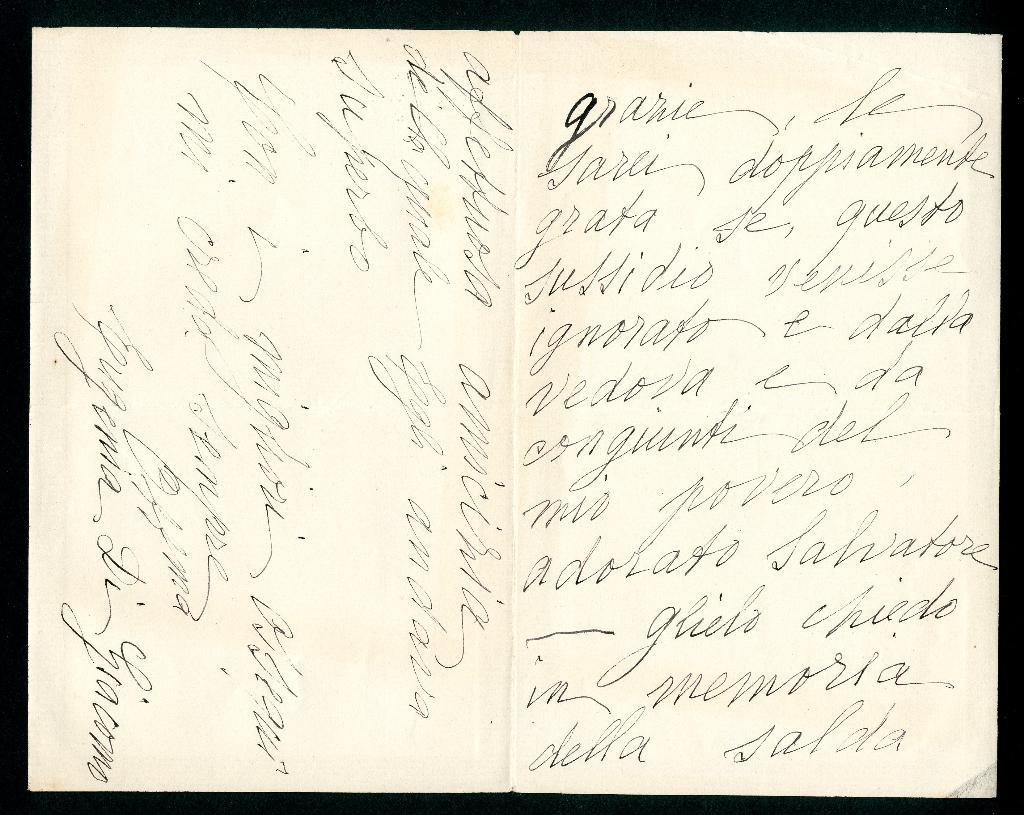 grazie, Le
sarei doppiamente
grata se, questo
sussidio venisse
ignorato e dalla
vedova e da
congiunti del
mio povero,
adorato Salvatore
— glielo chiedo
in memoria
della salda
affettuosa amicizia
della quale Egli andava
superbo
Con i migliori ossequi
mi creda sempre
Sua
Eugenia Di Giacomo